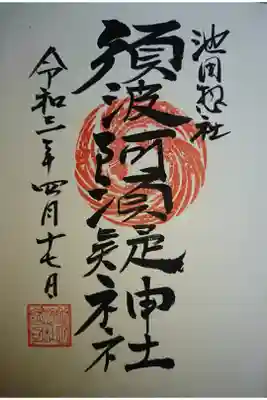 池田惣社
須波阿湏疑神社
令和二年四月十七日